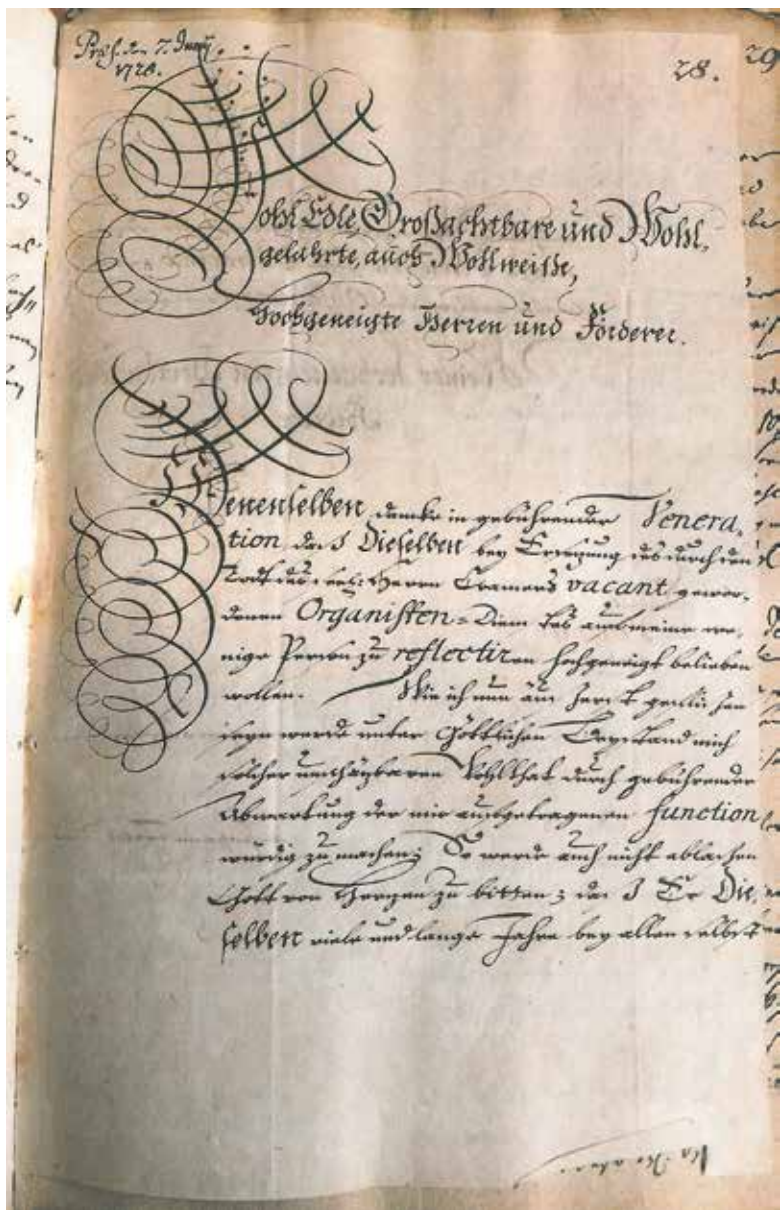 Præs. den 7. Juny
1728.
28.
29
Wohl Edle, Großachtbare und Wohl,
gelahrte, auch Wollweiße,
Hochgeneigte Herren und Förderer.
Denenselben dancke in gebührender Venera,
tion, daß Dieselben bey Ersezung des durch den
Todt des seel: Herrn Cramers vacant gewor,
denen Organisten-Dienstes auf meine we,
nige Person zu reflectiren hochgeneigt belieben
wollen. Wie ich nun äuserst geflissen
seyn werde unter Göttlichen Beystand mich
solcher unschäzbaren Wohlthat durch gebührender
Abwartung der mir aufgetragenen function
würdig zu machen; So werde auch nicht ablassen
Gott von Herzen zu bitten; daß Er Die,
selben viele und lange Jahre bey allen selbst